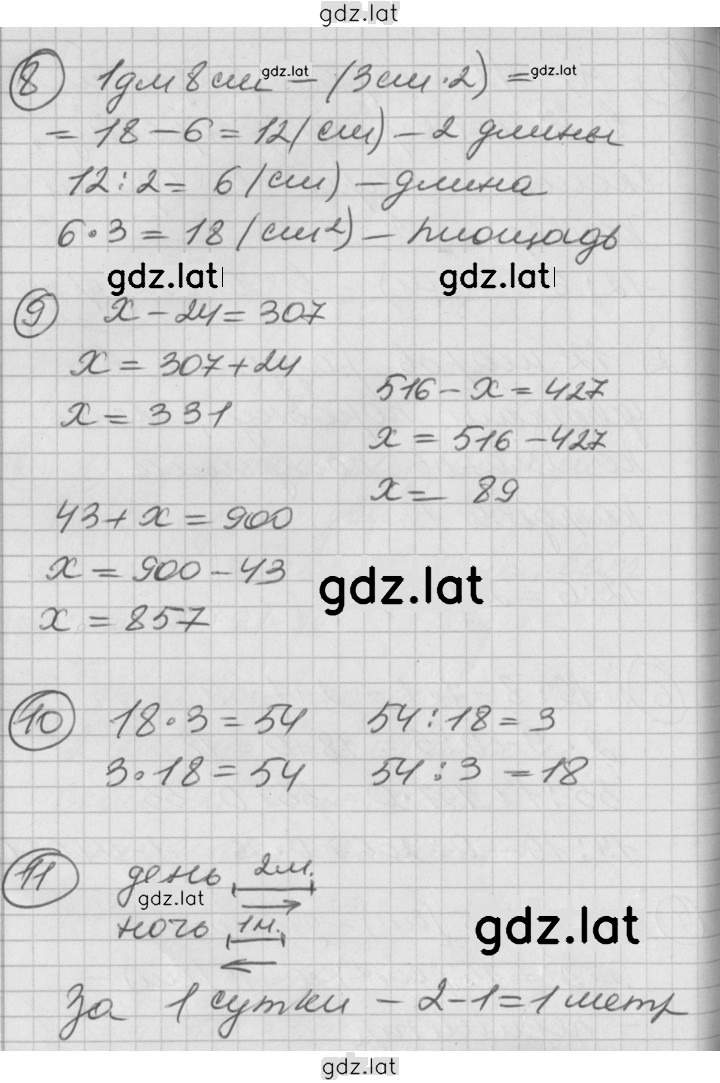 gdz.lat
8 1дм 8см gdz.lat – (3см · 2) = gdz.lat
= 18 – 6 = 12 (см) – 2 длины
12 : 2 = 6 (см) – длина
6 · 3 = 18 (см²) – площадь
gdz.lat gdz.lat
9 x – 24 = 307
x = 307 + 24
x = 331
516 – x = 427
x = 516 – 427
x = 89
43 + x = 900
x = 900 – 43
x = 857
gdz.lat
10 18 · 3 = 54 54 : 18 = 3
3 · 18 = 54 54 : 3 = 18
11 день 2м.
gdz.lat
ночь 1м.
gdz.lat
За 1 сутки – 2 – 1 = 1 метр
gdz.lat